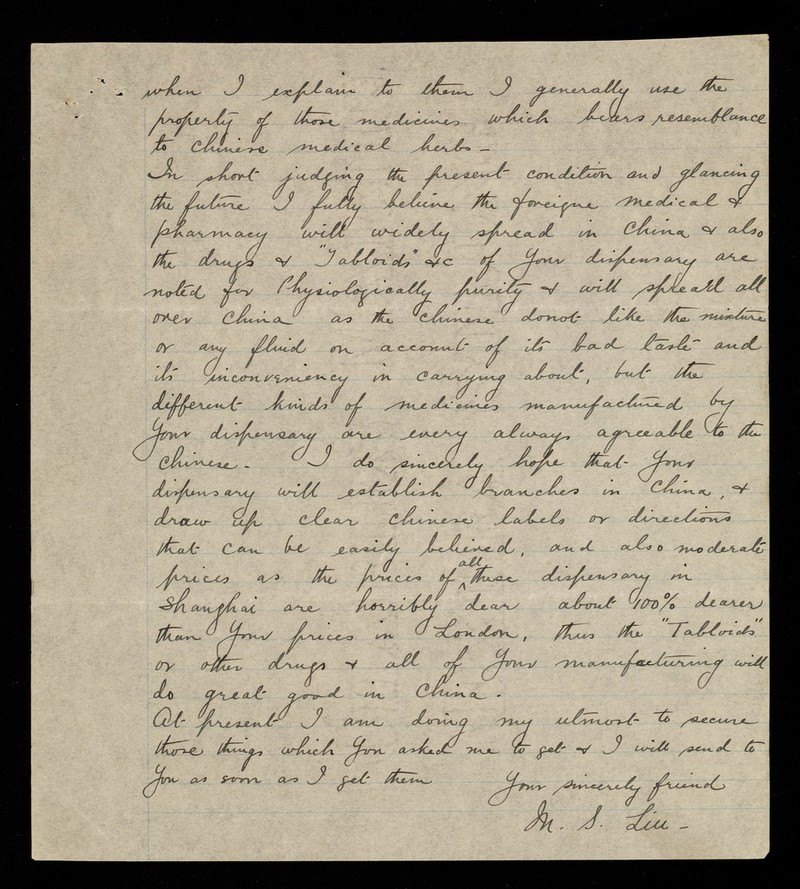 when I explain to them I generally use the
property of those medicines which bears resemblance
to Chinese medical herbs -
In short judging the present condition and glancing
the future I fully believe the foreigne medical &
pharmacy will widely spread in China & also
the drugs & "Tabloids" &c of Your dispensary are
noted for Physiologically purity & will spread all
over China as the Chinese donot like the mixture
or any fluid on account of its bad taste and
its inconveniency in carrying about, but the
different kinds of medicines manufactured by
Your dispensary are every always agreeable to the
Chinese - I do sincerely hope that Your
dispensary will establish branches in China, &
draw up clear Chinese labels or directions
that can be easily believed, and also moderate
prices as the prices of all these dispensary in
Shanghai are horribly dear about 100% dearer
than Your prices in London, thus the "Tabloids"
or other drugs & all of Your manufacturing will
do great good in China.
At present I am doing my utmost to secure
those things which You asked me to get & I will send to
You as soon as I get them Your sincerely friend
M. S. Liu -